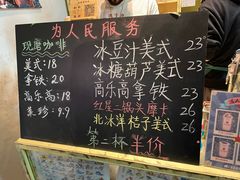 为人民服务
现磨咖啡
美式:18
拿铁:20
高乐高:18
果珍:9.9
冰豆汁美式 23
冰糖葫芦美式 23
高乐高拿铁 23
红星二锅头摩卡 26
北冰洋桔子美式 26
第二杯半价